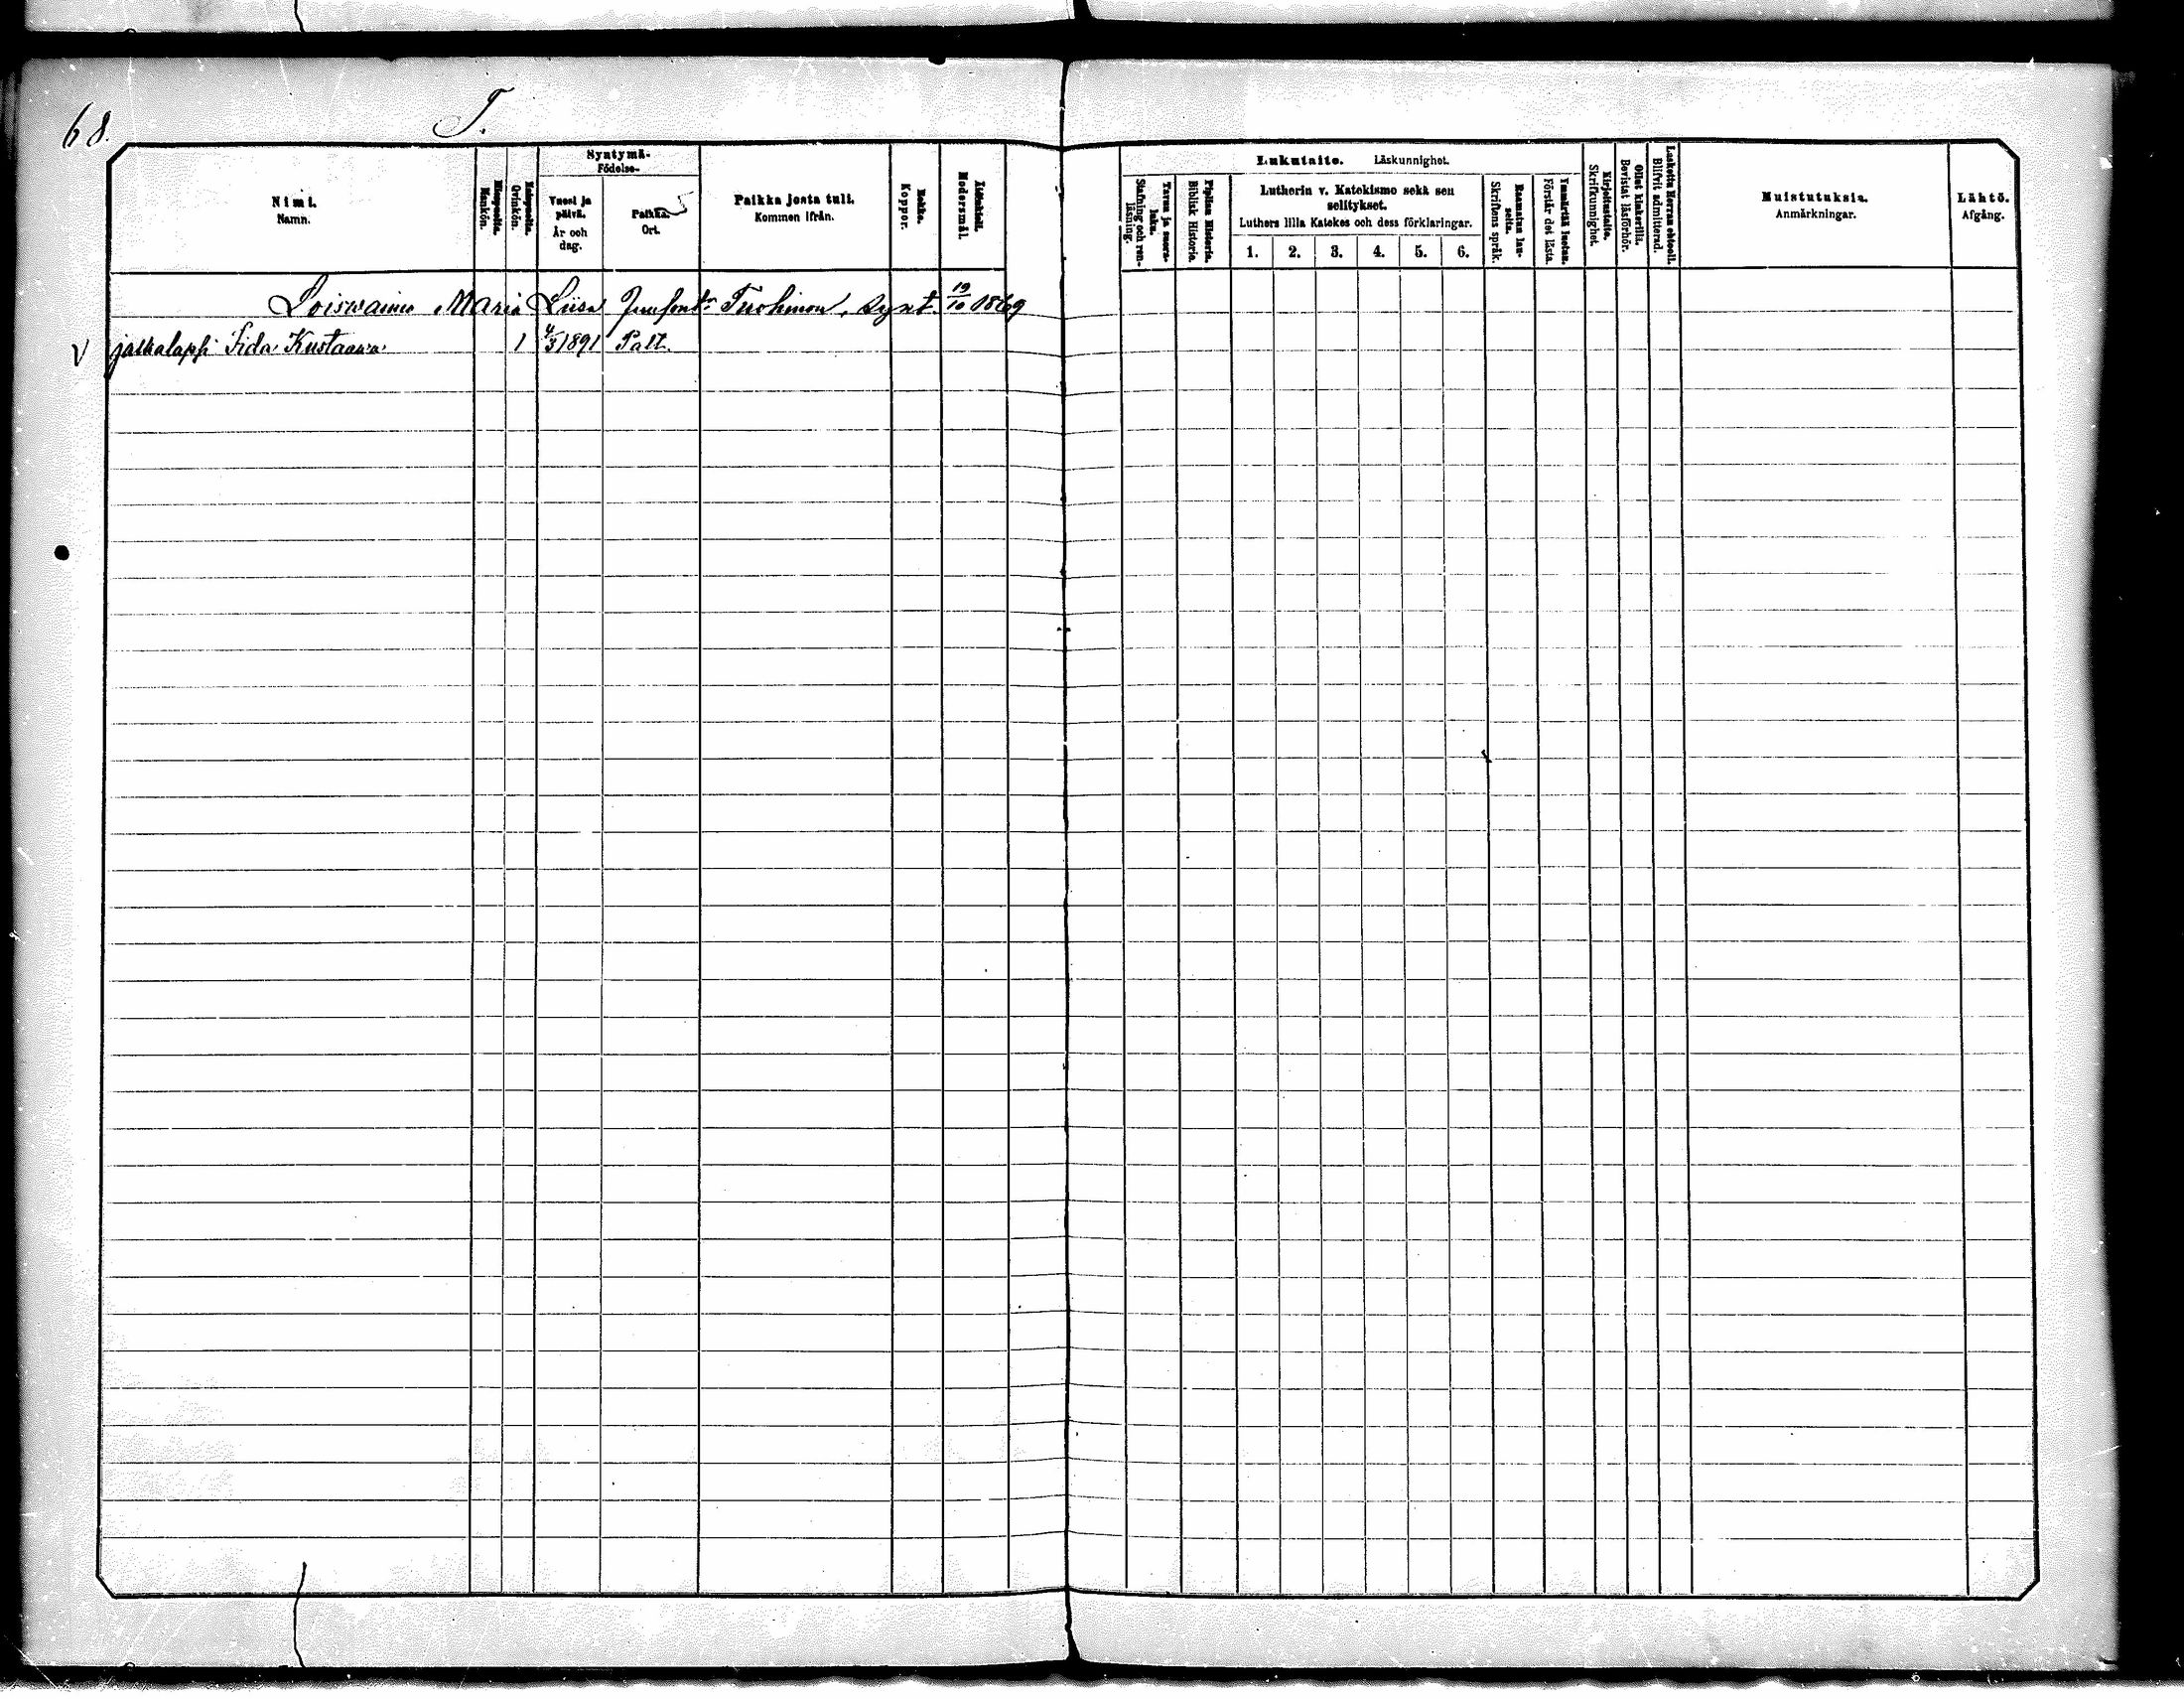 68.
T.
Nimi.
Namn.
Miespuolia.
Mankön.
Naispuolia.
Qvinkön.
Syntymä-
Födelse-
Vuosi ja
päivä.
År och
dag.
Paikka.
Ort.
Paikka josta tuli.
Kommen ifrån.
Rokko.
Koppor.
Äitinkieli.
Modersmål.
Lukutaito. Läskunnighet.
Tavuu ja suora-
luku.
Stafning och ren-
läsning.
Piplian Historia.
Biblisk Historia.
Lutherin v. Katekismo sekä sen
selitykset.
Luthers lilla Katekes och dess förklaringar.
1. 2. 3. 4. 5. 6.
Raamatun lau-
seita.
Skriftens språk.
Ymmärtää luetun.
Förstår det lästa.
Kirjoitustaito.
Skrifkunnighet.
Ollut kinkerillä.
Bevistat läsförhör.
Laskettu Herran ehtooll.
Blifvit admitterad.
Muistutuksia.
Anmärkningar.
Lähtö.
Afgång.
Loiswaimo Maria Liisa Tuohinon, synt. 19/10 1869
V jalkalapsi Iida Kustaawa 1 4/5 1891 Palt.